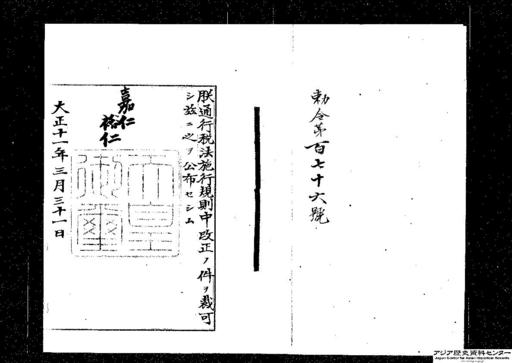 勅令第百七十六號
朕通行税法施行規則中改正ノ件ヲ裁可
シ茲ニ之ヲ公布セシム
嘉仁
裕仁
大正十一年三月三十一日
アジア歴史資料センター
Japan Center for Asian Historical Records